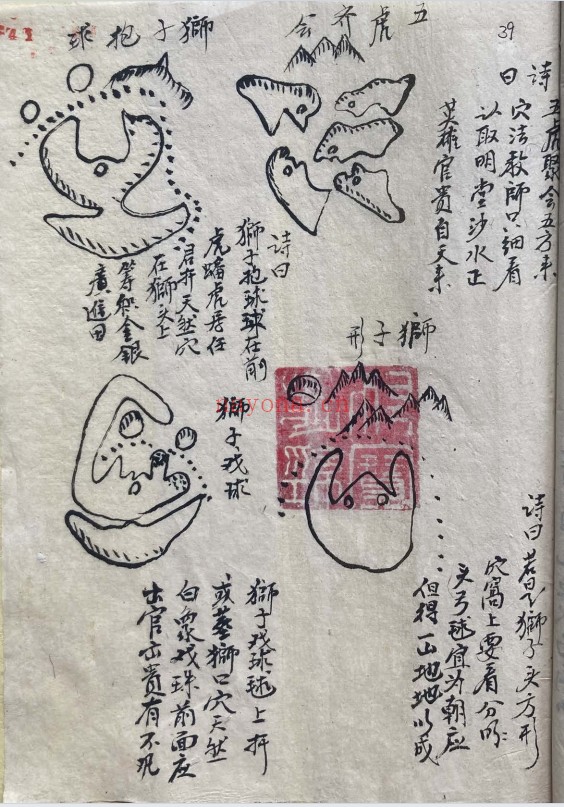 39
五虎齐会
诗曰
五虎聚会五方来
穴法教师只细看
以取明堂沙水正
英雄官贵自天来
獅子抱球
诗曰
獅子抱球球在前
虎踏虎居任
君扦天然穴
在獅头上
等积金银
廣進田
獅子形
诗曰若是獅子头方形
穴窩上要看分明
头弓毬宜为朝应
但得一山地地以成
獅子戏球
獅子戏球毬上扦
或葬獅口穴天然
白象戏珠前面应
出官出贵有不凡